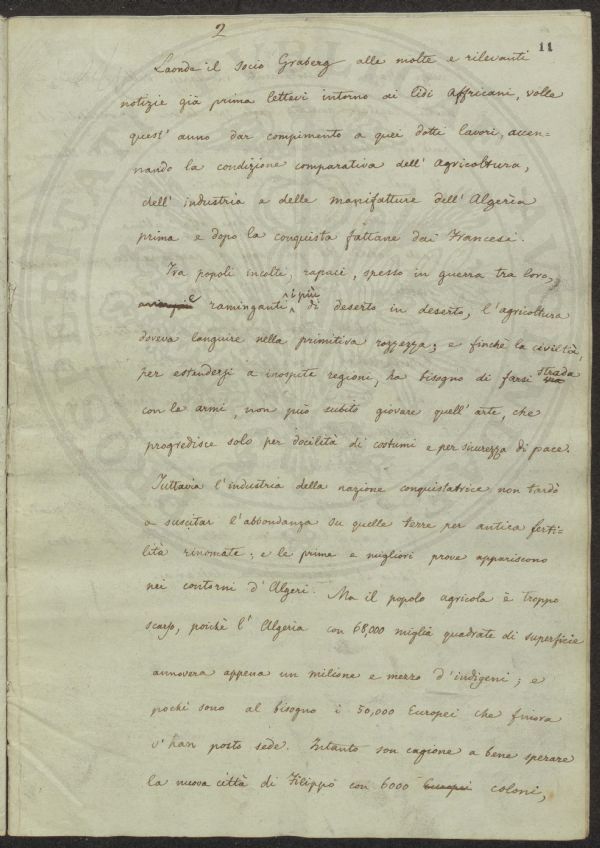 2
11
Laonde il socio Graberg alle molte e rilevanti
notizie già prima lettevi intorno ai lidi affricani, volle
quest' anno dar compimento a quei dotti lavori, accen-
nando la condizione comparativa dell' agricoltura,
dell' industria e delle manifatture dell' Algeria
prima e dopo la conquista fattane dai Francesi.
Tra popoli incolti, rapaci, spesso in guerra tra loro,
e raminganti i più di deserto in deserto, l'agricoltura
doveva languire nella primitiva rozzezza; e finchè la civiltà,
per estendersi a inospite regioni, ha bisogno di farsi strada
con le armi, non può subito giovare quell' arte, che
progredisce solo per docilità di costumi e per sicurezza di pace.
Tuttavia l'industria della nazione conquistatrice non tardò
a suscitar l'abbondanza su quelle terre per antica ferti-
lità rinomate; e le prime e migliori prove appariscono
nei contorni d'Algeri. Ma il popolo agricola è troppo
scarso, poichè l'Algeria con 68,000 miglia quadrate di superficie
annovera appena un milione e mezzo d'indigeni; e
pochi sono al bisogno i 50,000 Europei che finora
v' han posto sede. Intanto son cagione a bene sperare
la nuova città di Filippo con 6000 Europei coloni,